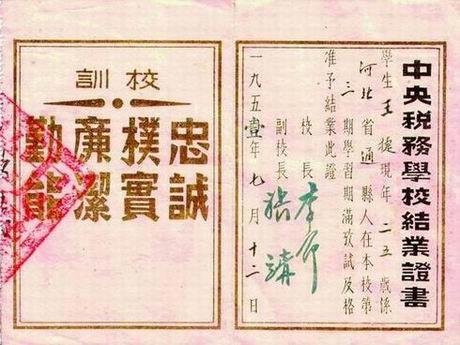 中央税務學校結業證書
學生王現年二五歲係
河北省通縣人在本校第
三期學習期滿攷試及格
准予結業此證
校長李
副校長張
一九五壹年七月十二日
校訓
忠誠
樸實
廉潔
勤能